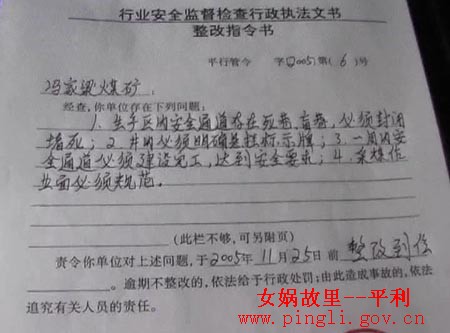 行业安全监督检查行政执法文书
整改指令书
平行管令 字〔2005〕第(6)号
冯家梁煤矿:
经查,你单位存在下列问题:
1.生产区内安全通道存在死巷、盲巷,必须封闭
堵死;2.井内必须明确悬挂标示牌;3.一周内安
全通道必须建设完工,达到安全要求;4.采煤作
业面必须规范。
(此栏不够,可另附页)
责令你单位对上述问题,于2005年11月25日前 整改到位
。逾期不整改的,依法给予行政处罚;由此造成事故的,依法
追究有关人员的责任。
女娲故里--平利
www.pingli.gov.cn